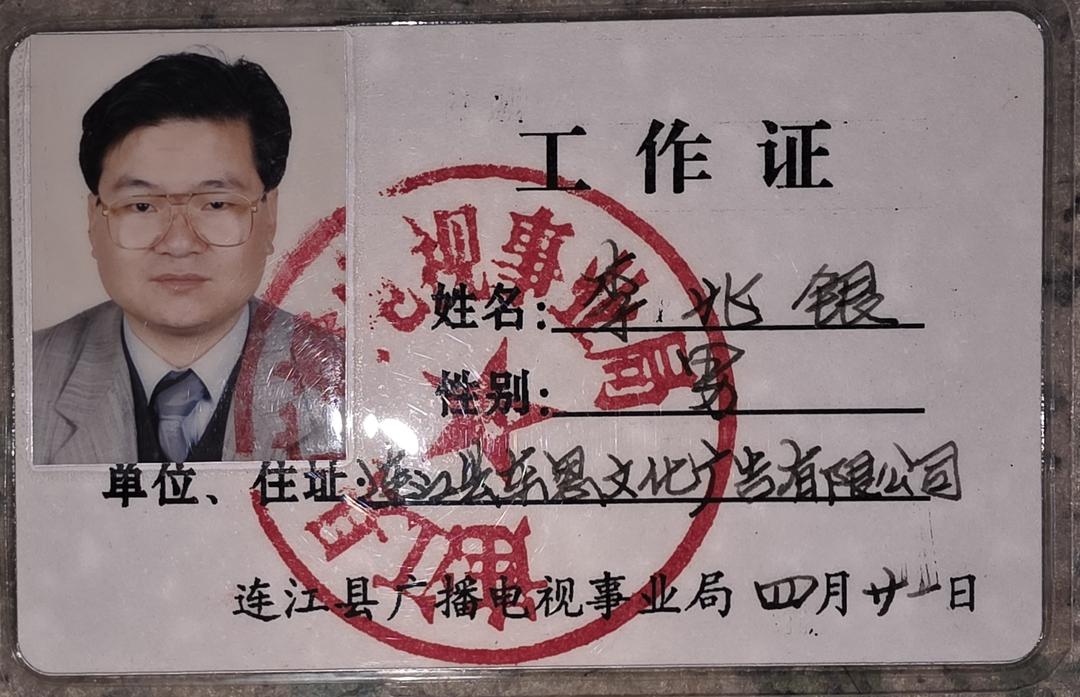 工作证
姓名：李兆银
性别：男
单位、住址：连江县东恩文化广告有限公司
连江县广播电视事业局 四月廿一日
视事业局